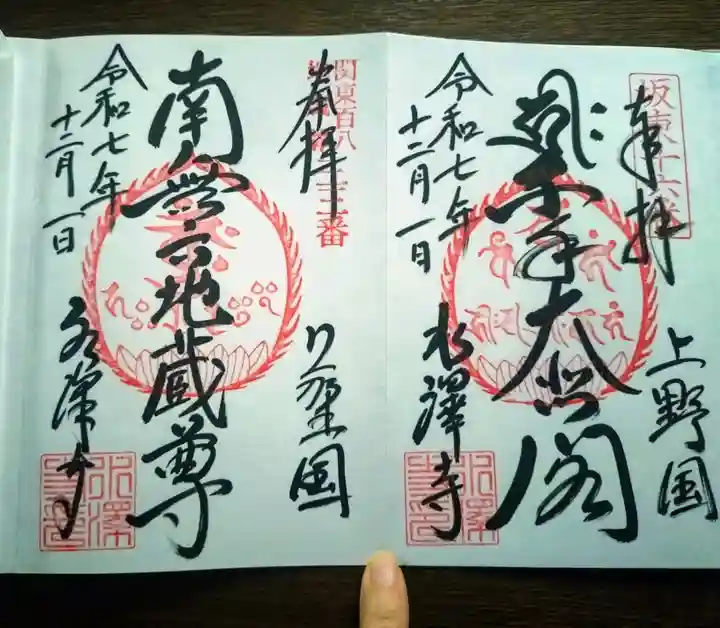 坂東十六番
奉拝
上野国
千手大悲閣
令和七年
十二月一日
水澤寺
関東百八
三番
奉拝
上野国
南無六地蔵尊
令和七年
十二月一日
水澤寺